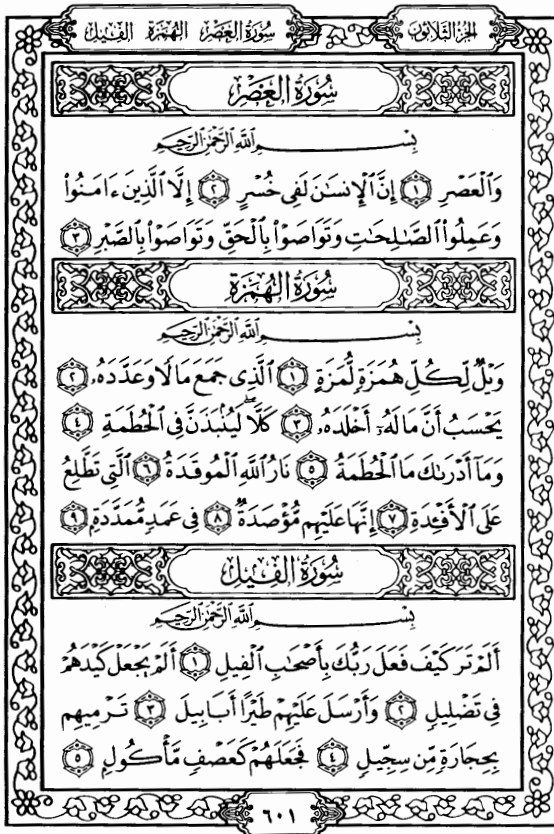 سُورَةُ العَصْرِ الهُمَزَةِ الفِيلِ
الجُزْءُ الثَّلَاثُونَ
سُورَةُ العَصْرِ
بِسْمِ ٱللَّهِ ٱلرَّحْمَٰنِ ٱلرَّحِيمِ
وَٱلْعَصْرِ ١ إِنَّ ٱلْإِنسَٰنَ لَفِى خُسْرٍ ٢ إِلَّا ٱلَّذِينَ ءَامَنُوا۟
وَعَمِلُوا۟ ٱلصَّٰلِحَٰتِ وَتَوَاصَوْا۟ بِٱلْحَقِّ وَتَوَاصَوْا۟ بِٱلصَّبْرِ ٣
سُورَةُ الهُمَزَةِ
بِسْمِ ٱللَّهِ ٱلرَّحْمَٰنِ ٱلرَّحِيمِ
وَيْلٌ لِّكُلِّ هُمَزَةٍ لُّمَزَةٍ ١ ٱلَّذِى جَمَعَ مَالًا وَعَدَّدَهُۥ ٢
يَحْسَبُ أَنَّ مَالَهُۥٓ أَخْلَدَهُۥ ٣ كَلَّا ۖ لَيُنۢبَذَنَّ فِى ٱلْحُطَمَةِ ٤
وَمَآ أَدْرَىٰكَ مَا ٱلْحُطَمَةُ ٥ نَارُ ٱللَّهِ ٱلْمُوقَدَةُ ٦ ٱلَّتِى تَطَّلِعُ
عَلَى ٱلْأَفْـِٔدَةِ ٧ إِنَّهَا عَلَيْهِم مُّؤْصَدَةٌ ٨ فِى عَمَدٍ مُّمَدَّدَةٍۭ ٩
سُورَةُ الفِيلِ
بِسْمِ ٱللَّهِ ٱلرَّحْمَٰنِ ٱلرَّحِيمِ
أَلَمْ تَرَ كَيْفَ فَعَلَ رَبُّكَ بِأَصْحَٰبِ ٱلْفِيلِ ١ أَلَمْ يَجْعَلْ كَيْدَهُمْ
فِى تَضْلِيلٍ ٢ وَأَرْسَلَ عَلَيْهِمْ طَيْرًا أَبَابِيلَ ٣ تَرْمِيهِم
بِحِجَارَةٍ مِّن سِجِّيلٍ ٤ فَجَعَلَهُمْ كَعَصْفٍ مَّأْكُولٍۭ ٥
٦٠١